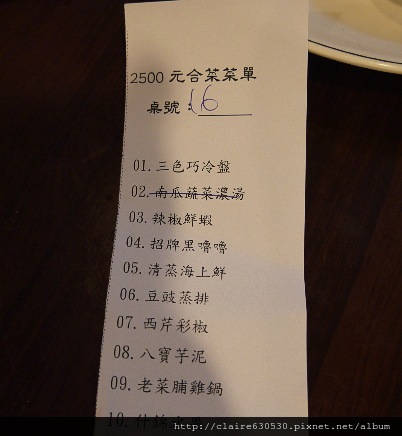 2500 元合菜菜單
桌號：16
01. 三色巧冷盤
02. 南瓜蔬菜濃湯
03. 辣椒鮮蝦
04. 招牌黑嚕嚕
05. 清蒸海上鮮
06. 豆豉蒸排
07. 西芹彩椒
08. 八寶芋泥
09. 老菜脯雞鍋
10. 什錦水果
http://claire630530.pixnet.net/album